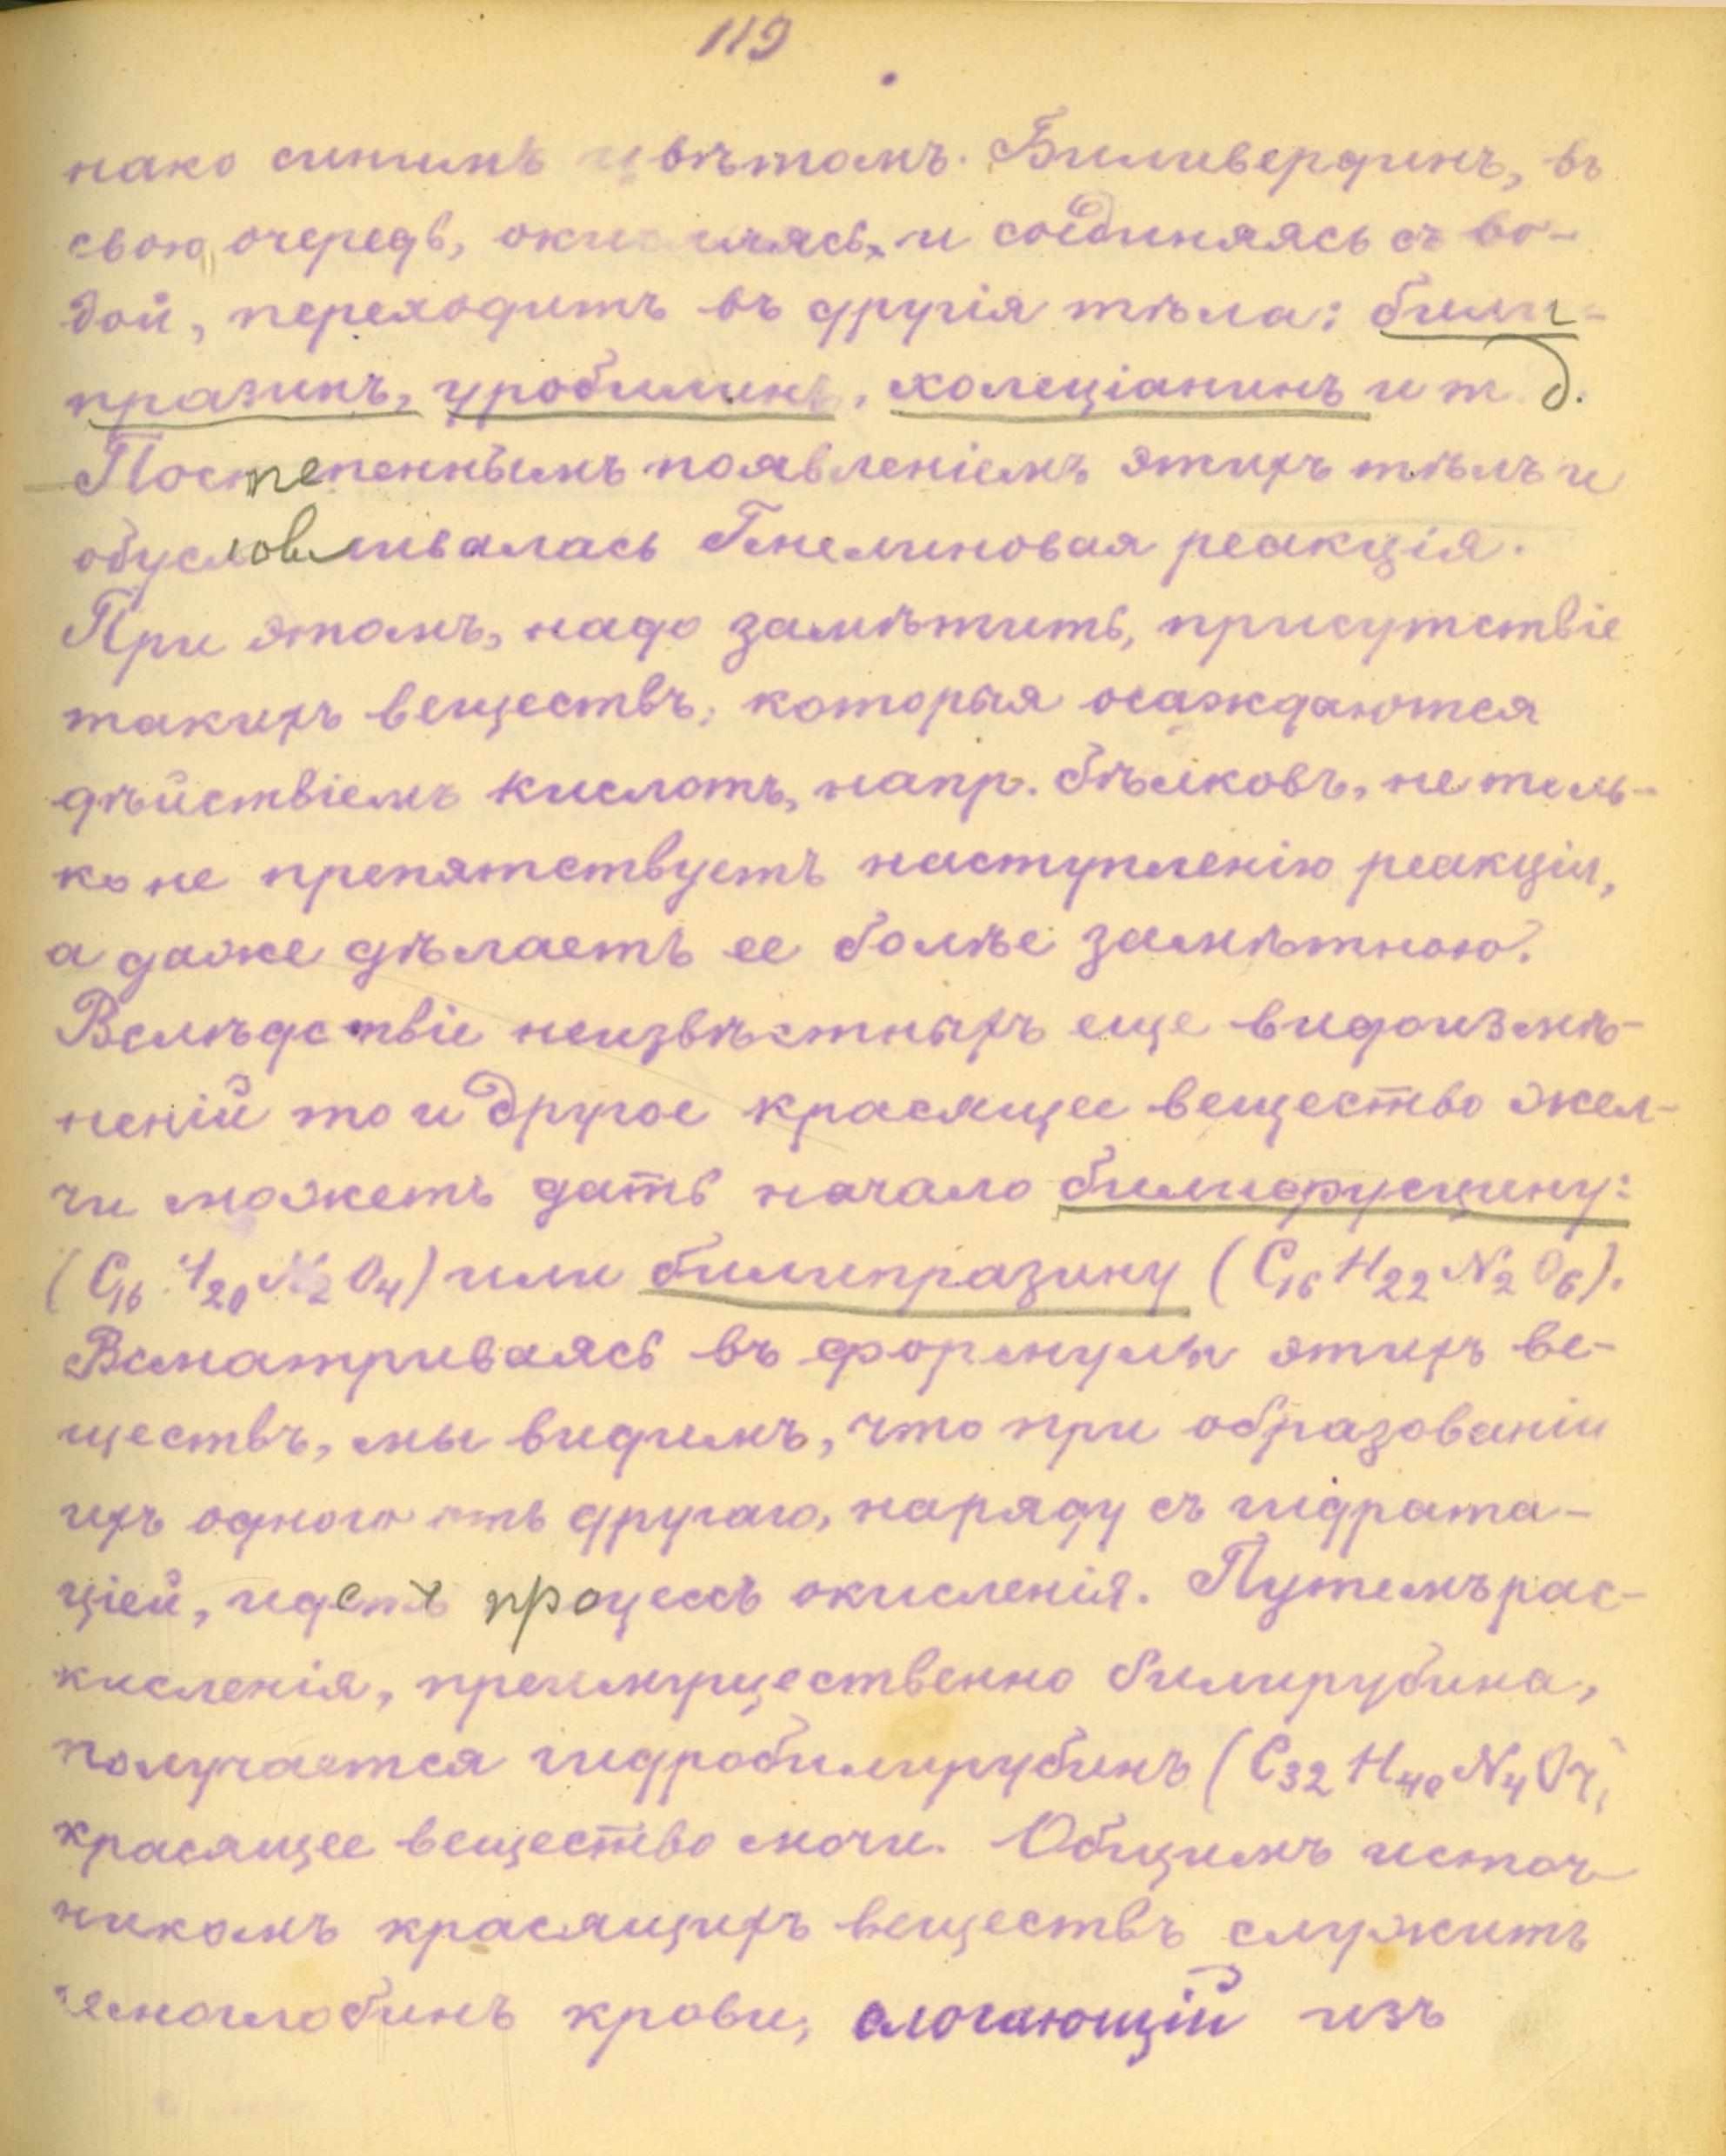 119
нако синимъ цвѣтомъ. Биливердинъ, въ
свою очередь, окисляясь и соединяясь съ во-
дой, переходитъ въ другія тѣла: били-
празинъ, уробилинъ, холеціанинъ и т. д.
Постепеннымъ появленіемъ этихъ тѣлъ и
обусловливалась Гмелиновая реакція.
При этомъ, надо замѣтить, присутствіе
такихъ веществъ, которыя осаждаются
дѣйствіемъ кислотъ, напр. бѣлковъ, не толь-
ко не препятствуетъ наступленію реакціи,
а даже дѣлаетъ ее болѣе замѣтною.
Вслѣдствіе неизвѣстныхъ еще видоизмѣ-
неній то и другое красящее вещество жел-
чи можетъ дать начало билифусцину:
(C16 H20 N2 O4) или билипразину (C16 H22 N2 O6).
Всматриваясь въ формулы этихъ ве-
ществъ, мы видимъ, что при образованіи
ихъ одного отъ другаго, наряду съ гидрата-
ціей, идетъ процессъ окисленія. Путемъ рас-
кисленія, преимущественно билирубина,
получается гидробилирубинъ (C32 H40 N4 O7,
красящее вещество мочи. Общимъ источ-
никомъ красящихъ веществъ служитъ
гемоглобинъ крови, изъ